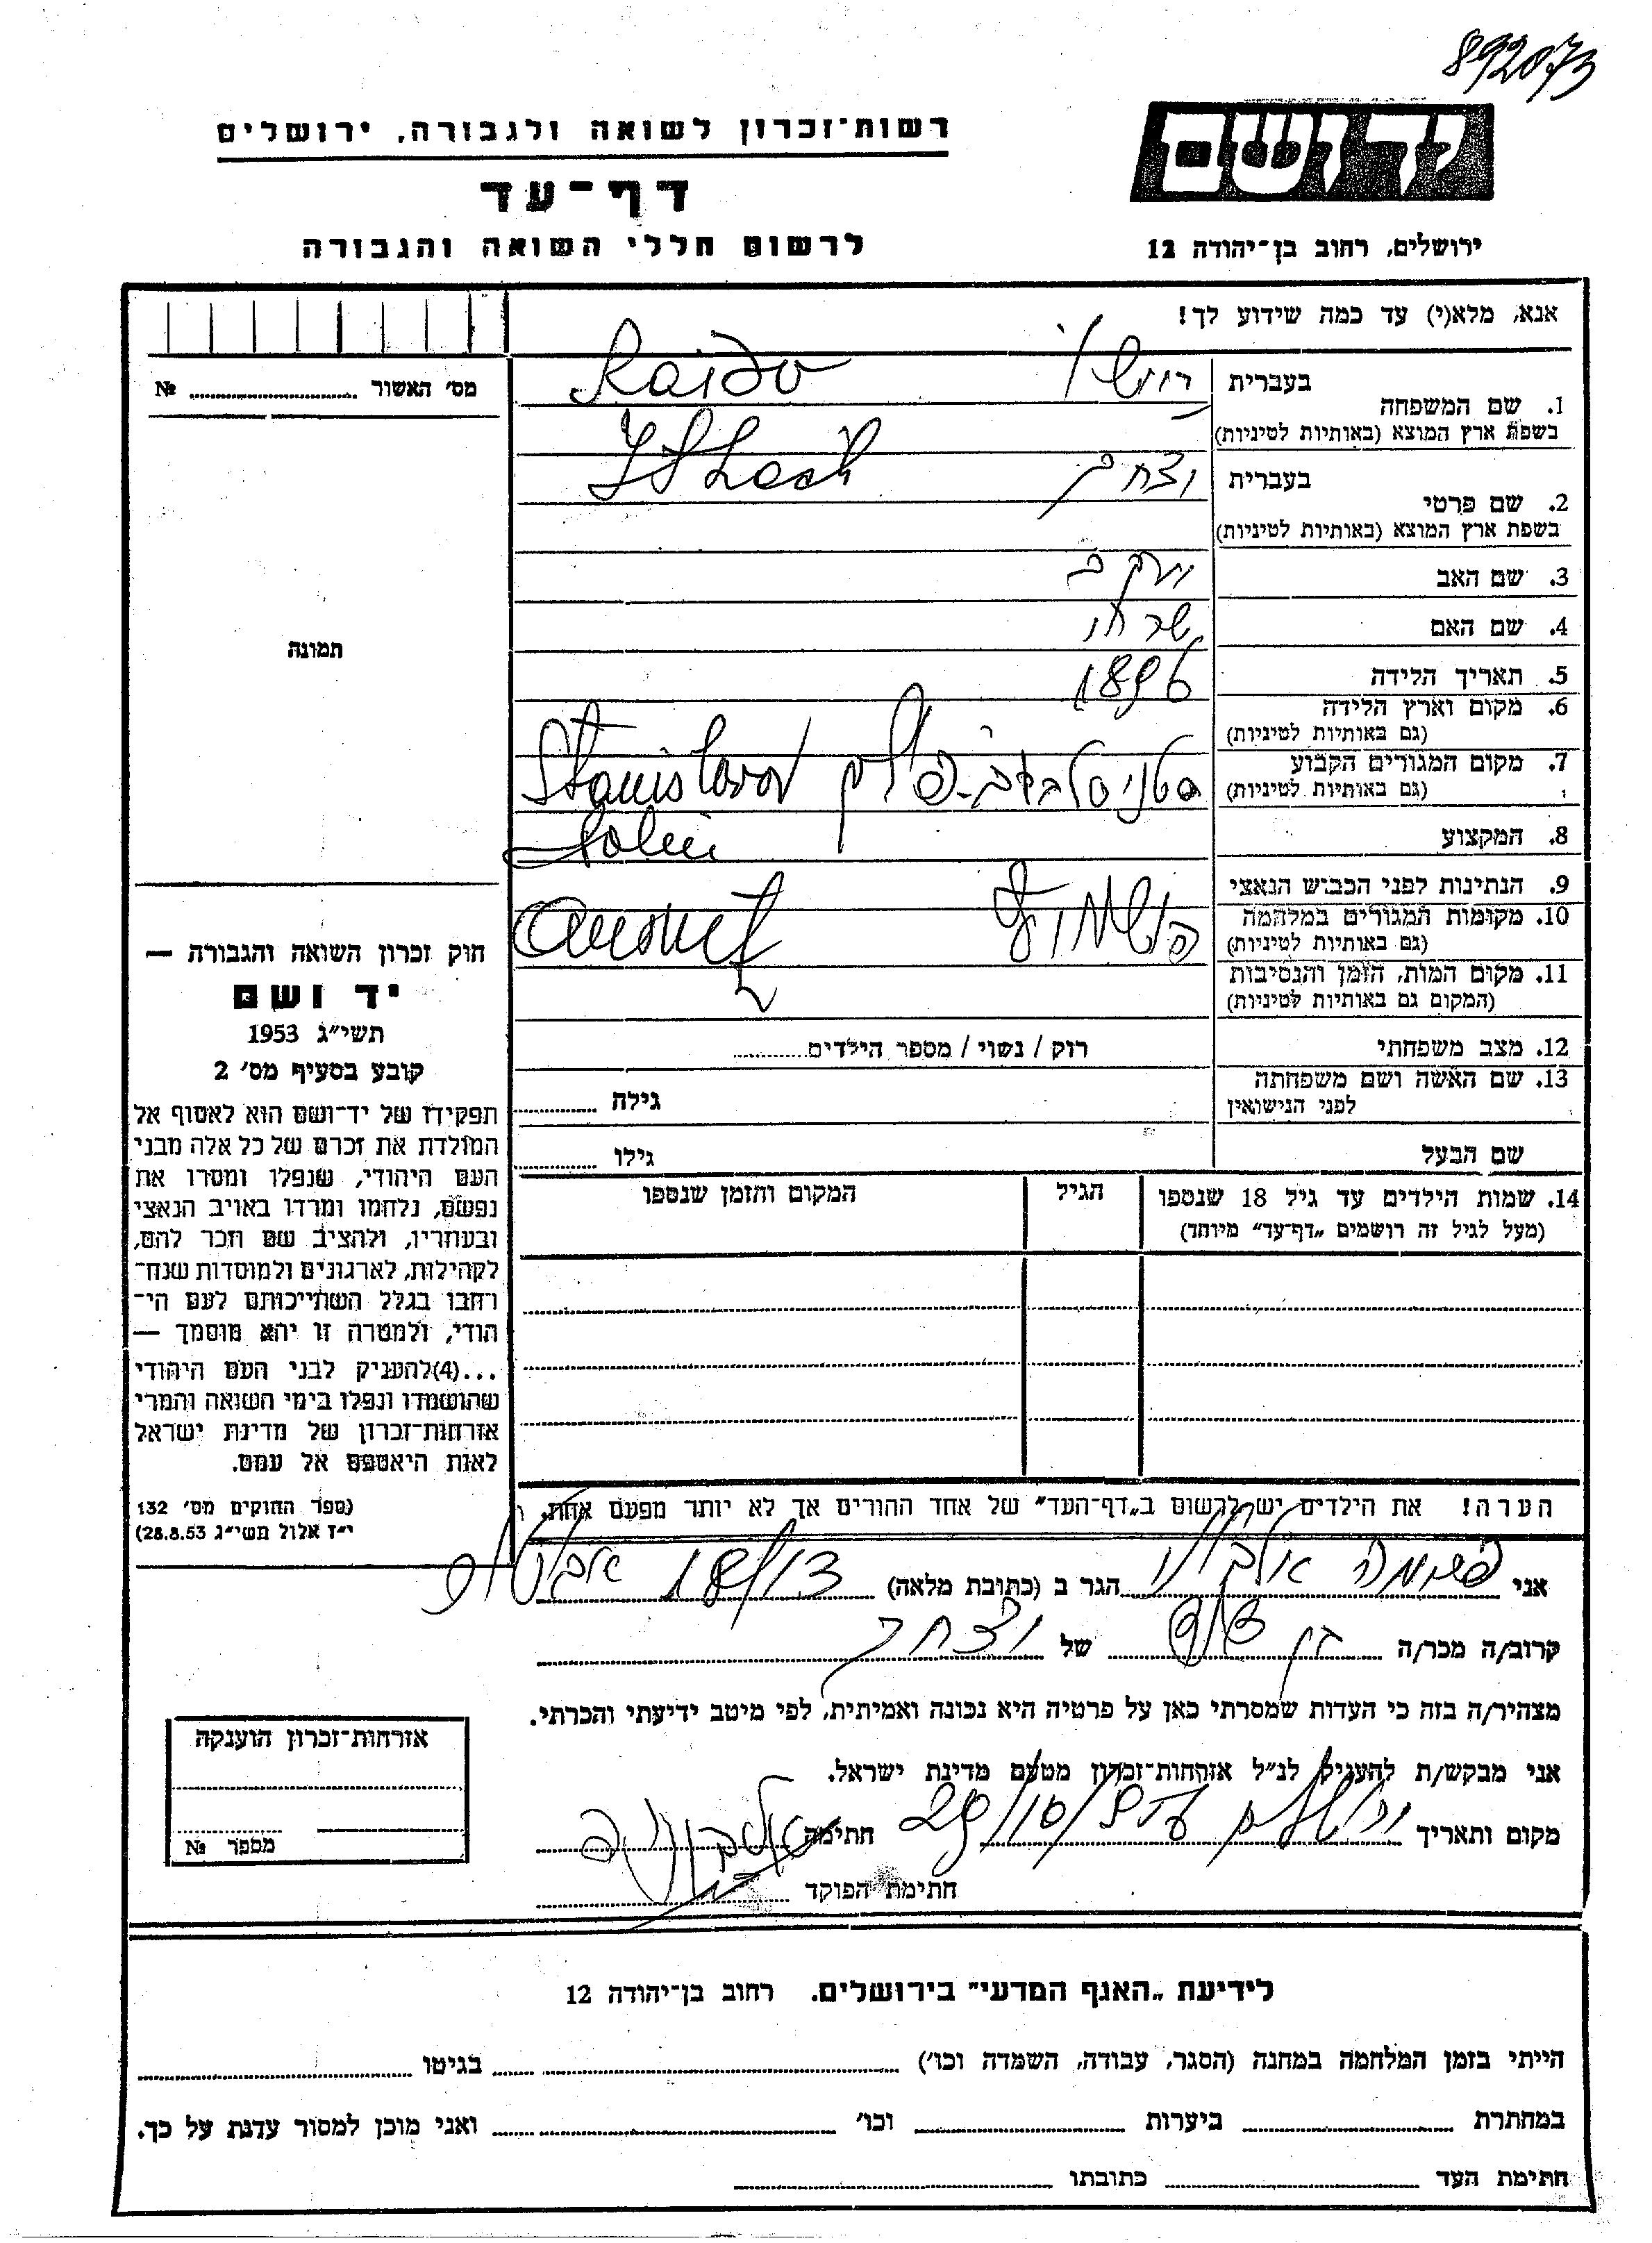 892073
רשות־זכרון לשואה ולגבורה, ירושלים
יד ושם
דף־עד
לרשום חללי השואה והגבורה
ירושלים, רחוב בן־יהודה 12
אנא, מלא(י) עד כמה שידוע לך!
מס' האשור № 
בעברית
1. שם המשפחה
בשפת ארץ המוצא (באותיות לטיניות)
בעברית יצחק
2. שם פרטי
בשפת ארץ המוצא (באותיות לטיניות)
3. שם האב יעקב
4. שם האם
5. תאריך הלידה 1896
6. מקום וארץ הלידה
(גם באותיות לטיניות)
7. מקום המגורים הקבוע סטניסלבוב - פולין Stanislavov
(גם באותיות לטיניות)
8. המקצוע
9. הנתינות לפני הכביש הנאצי
10. מקומות המגורים במלחמה
(גם באותיות לטיניות)
11. מקום המות, הזמן והנסיבות
(המקום גם באותיות לטיניות)
12. מצב משפחתי רוק / נשוי / מספר הילדים
13. שם האשה ושם משפחתה גילה
לפני הנישואין
שם הבעל גילו
14. שמות הילדים עד גיל 18 שנספו הגיל המקום והזמן שנספו
(מעל לגיל זה רושמים „דף־עד" מיוחד)
הערה! את הילדים יש לרשום ב„דף־העד" של אחד ההורים אך לא יותר מפעם אחת.
תמונה
חוק זכרון השואה והגבורה —
יד ושם
תשי״ג 1953
קובע בסעיף מס' 2
תפקידו של יד־ושם הוא לאסוף אל
המולדת את זכרם של כל אלה מבני
העם היהודי, שנפלו ומסרו את
נפשם, נלחמו ומרדו באויב הנאצי
ובעוזריו, ולהציב שם וזכר להם,
לקהילות, לארגונים ולמוסדות שנח־
רחבו בגלל השתייכותם לעם הי־
הודי, ולמטרה זו יהא מוסמך —
...(4)להעניק לבני העם היהודי
שהושמדו ונפלו בימי השואה והמרי
אזרחות־זכרון של מדינת ישראל
לאות היאספם אל עמם.
(ספר החוקים מס' 132
י״ז אלול תשי״ג 28.8.53)
אני הגר ב (כתובת מלאה)
קרוב/ה מכר/ה של יצחק
מצהיר/ה בזה כי העדות שמסרתי כאן על פרטיה היא נכונה ואמיתית, לפי מיטב ידיעתי והכרתי.
אני מבקש/ת להעניק לנ״ל אזרחות־זכרון מטעם מדינת ישראל.
מקום ותאריך ירושלים חתימה
חתימת הפוקד
אזרחות־זכרון הוענקה
מספר №
לידיעת „האגף המדעי" בירושלים. רחוב בן־יהודה 12
הייתי בזמן המלחמה במחנה (הסגר, עבודה, השמדה וכו') בגיטו
במחתרת ביערות וכו' ואני מוכן למסור עדות על כך.
חתימת העד כתובתו